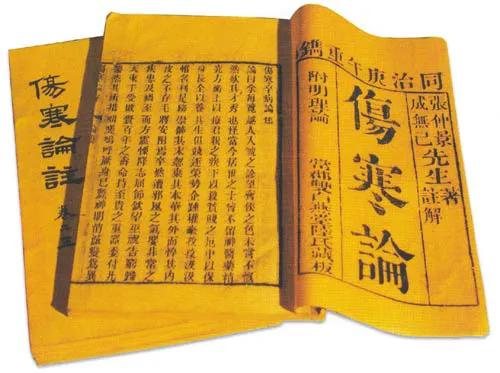 同治庚午重鐫
張仲景 成無已 先生 著 註解
傷寒論
附明理論 常郡雙白燕堂陸氏藏板
傷寒卒病論集
論曰余每覽越人入虢之診望齊侯之色未嘗不慨
然歎其才秀也怪當今居世之士曾不留神醫藥精
究方術上以療君親之疾下以救貧賤之厄中以保
身長全以養其生但競逐榮勢企踵權豪孜孜汲汲
惟名利是務崇飾其末忽棄其本華其外而悴其內
皮之不存毛將安附焉卒然遭邪風之氣嬰非常之
疾患及禍至而方震慄降志屈節欽望巫祝告窮歸
天束手受敗賫百年之壽命持至貴之重器委付凡
醫恣其所措咄嗟嗚呼厥身已斃神明消滅變為異
傷寒論註